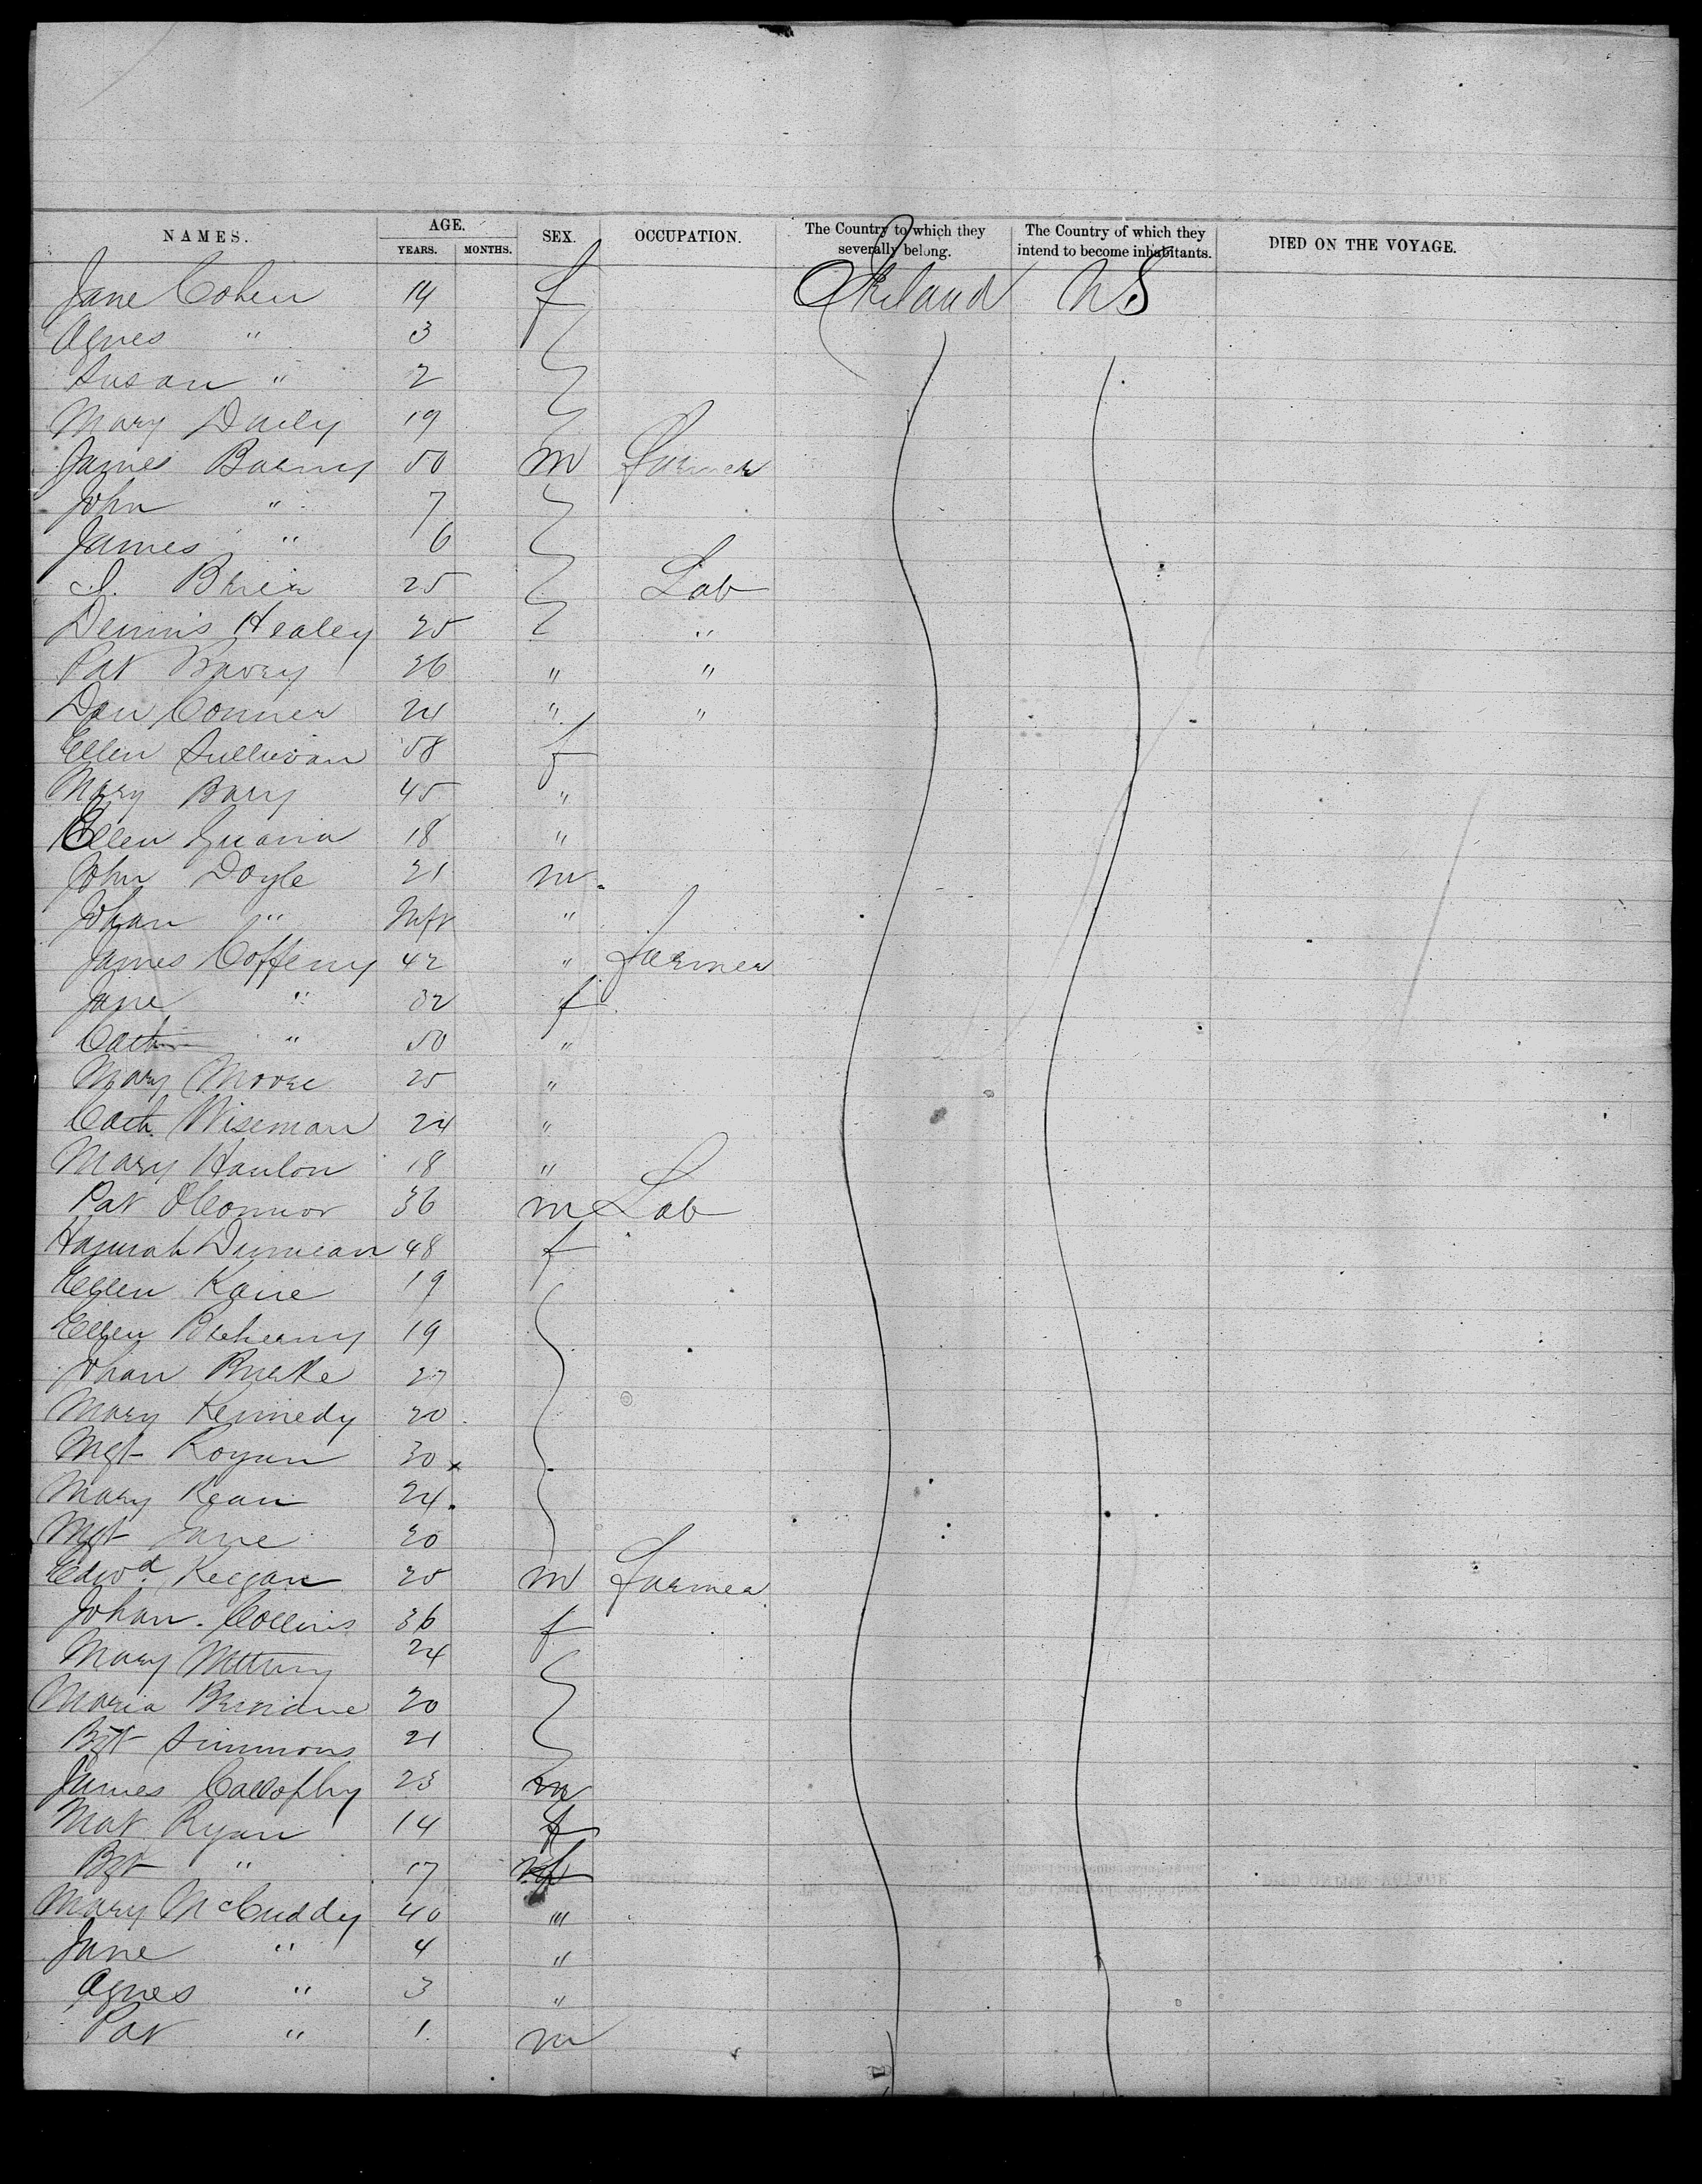 NAMES. AGE. YEARS. MONTHS. SEX. OCCUPATION. The Country to which they severally belong. The Country of which they intend to become inhabitants. DIED ON THE VOYAGE.
Jane Cohen 14 f Ireland U S
Agnes " 3
Susan " 2
Mary Daily 19
James Barny 50 m Farmer
John " 7
James " 6
J. Brien 25 Lab
Dennis Healey 25 "
Pat Barry 26 " "
Dan Conner 24 " "
Ellen Sullivan 58 f
Mary Barry 45 "
Ellen 18 "
John Doyle 21 m
Johan " Inft "
James Coffeny 42 " farmer
Jane " 32 f
Cath " 50 "
Mary Moore 25 "
Cath. Wiseman 24 "
Mary Hanlon 18 "
Pat OConnor 36 m Lab
Hannah Dunnean 48 f
Ellen Kane 19
Ellen 19
Johan Burke 27
Mary Kennedy 20
Mgt Rogan 30 x
Mary Kean 24
Mgt Jane 20
Edwd. Keegan 25 m Farmer
Johan. Collins 36 f
Mary 24
Maria 20
Bgt Simmons 21
James Callophy 23 m
Mat Ryan 14 f
Bgt " 17 f
Mary McCuddy 40 "
Jane " 4 "
Agnes " 3 "
Pat " 1. m